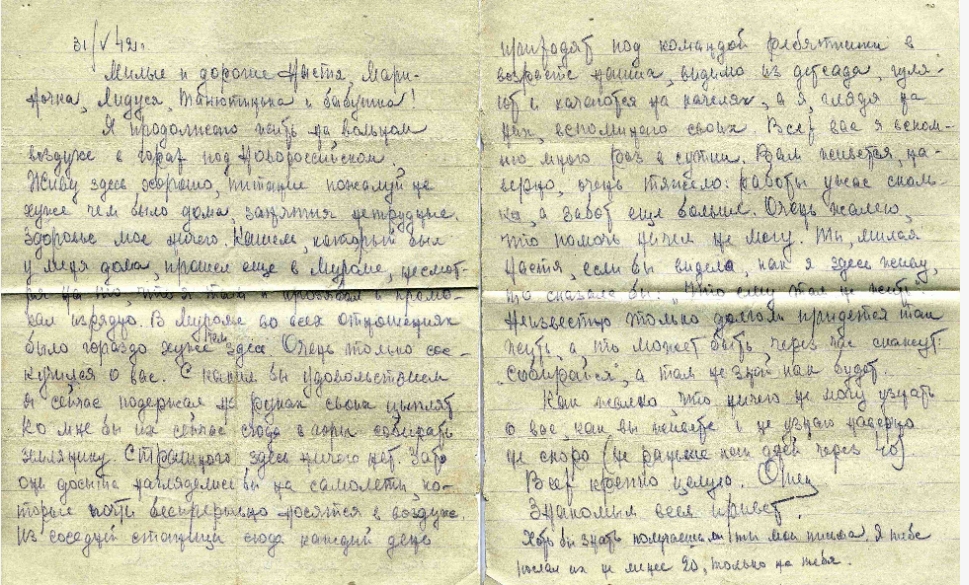 31/V 42г.
Милые и дорогие Настя, Мари-
ночка, Лидуся, Танютинька и бабушка!
Я продолжаю жить на вольном
воздухе в горах под Новороссийском.
Живу здесь хорошо, питание пожалуй не
хуже чем было дома, занятия нетрудные.
Здоровье мое ничего. Кашель, который был
у меня дома, прошел еще в Муроме, несмот-
ря на то, что я там и прозябал и промо-
кал изрядно. В Муроме во всех отношениях
было гораздо хуже чем здесь. Очень только сос-
кучился о вас. С каким бы удовольствием
я сейчас подержал на руках своих цыплят
Ко мне бы их сейчас сюда в горы собирать
землянику. Страшного здесь ничего нет. Зато
они досыта нагляделись бы на самолеты, ко-
торые почти беспрерывно носятся в воздухе.
Из соседней станицы сюда каждый день
приходят под командой ребятишки в
возрасте наших, видимо из детсада, гуля-
ют и качаются на качелях, а я, глядя на
них, вспоминаю своих. Всех вас я вспом-
ню много раз в сутки. Вам живется, на-
верно, очень тяжело: работы ужас сколь-
ко, а забот еще больше. Очень жалею,
что помочь ничем не могу. Ты, милая
Настя, если бы видела, как я здесь живу,
то сказала бы: "Что ему там не жить".
Неизвестно только долго ли придется там
жить, а, то может быть, через час скажут:
"Собирайся", а там не знаю как будет.
Как жалко, что ничего не могу узнать
о вас, как вы живете и не узнаю наверно
не скоро (не раньше как дней через 40).
Всех крепко целую. Отец
Знакомым всем привет.
Хоть бы знать получаешь ли ты мои письма. Я тебе
послал их не менее 20, только на тебя.